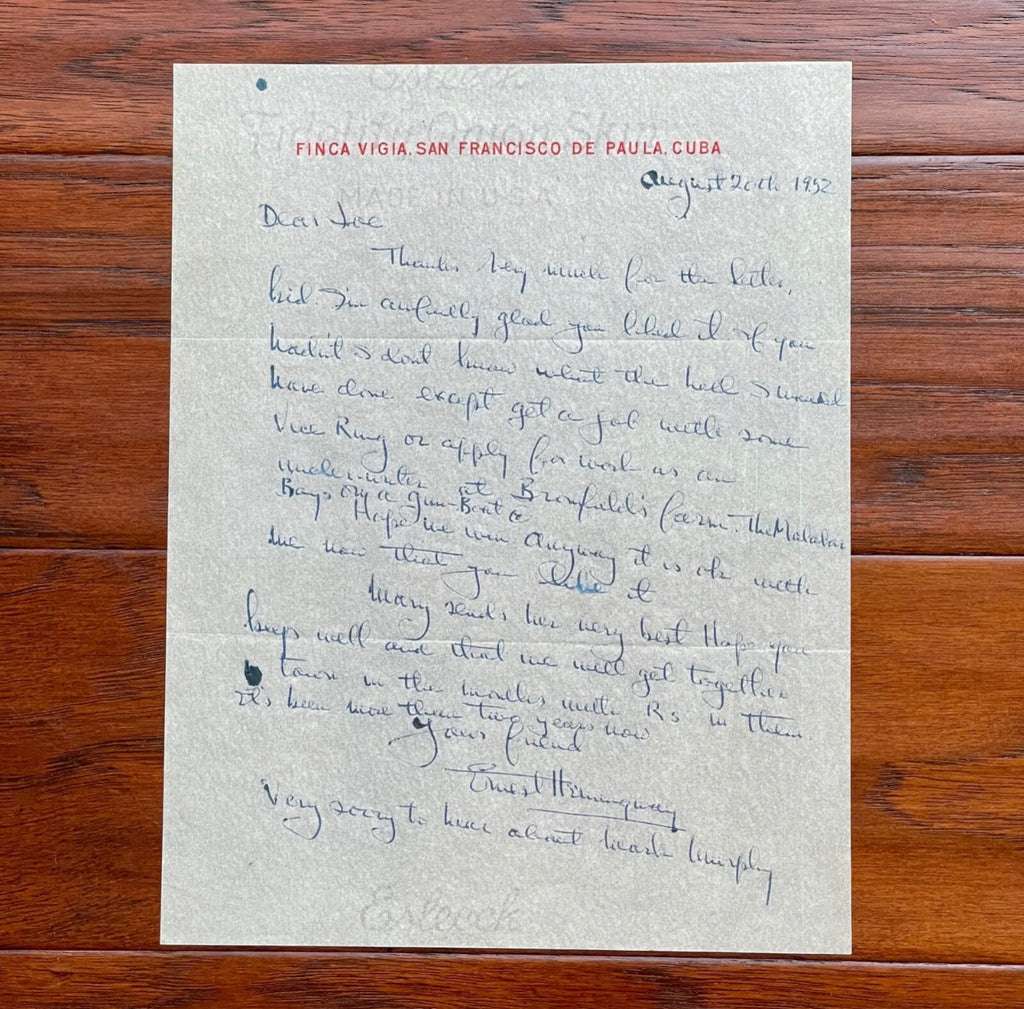 Esleeck
Fidelity Onion Skin
FINCA VIGIA, SAN FRANCISCO DE PAULA, CUBA
MADE IN U.S.A.
August 20th 1952
Dear Joe
Thanks very much for the letter,
kid I'm awfully glad you liked it if you
hadn't I don't know what the hell I would
have done except get a job with some
Vice Ring or apply for work as an
under-writer at Bromfield's farm. The Malabar
Bays on a Gun-Boat
Hope we win Anyway it is ok with
me now that you like it
Mary sends her very best Hope you
keep well and that we will get together
town in the months with Rs in them
it's been more than two years now
Your friend
Ernest Hemingway
Very sorry to hear about Murphy
Esleeck